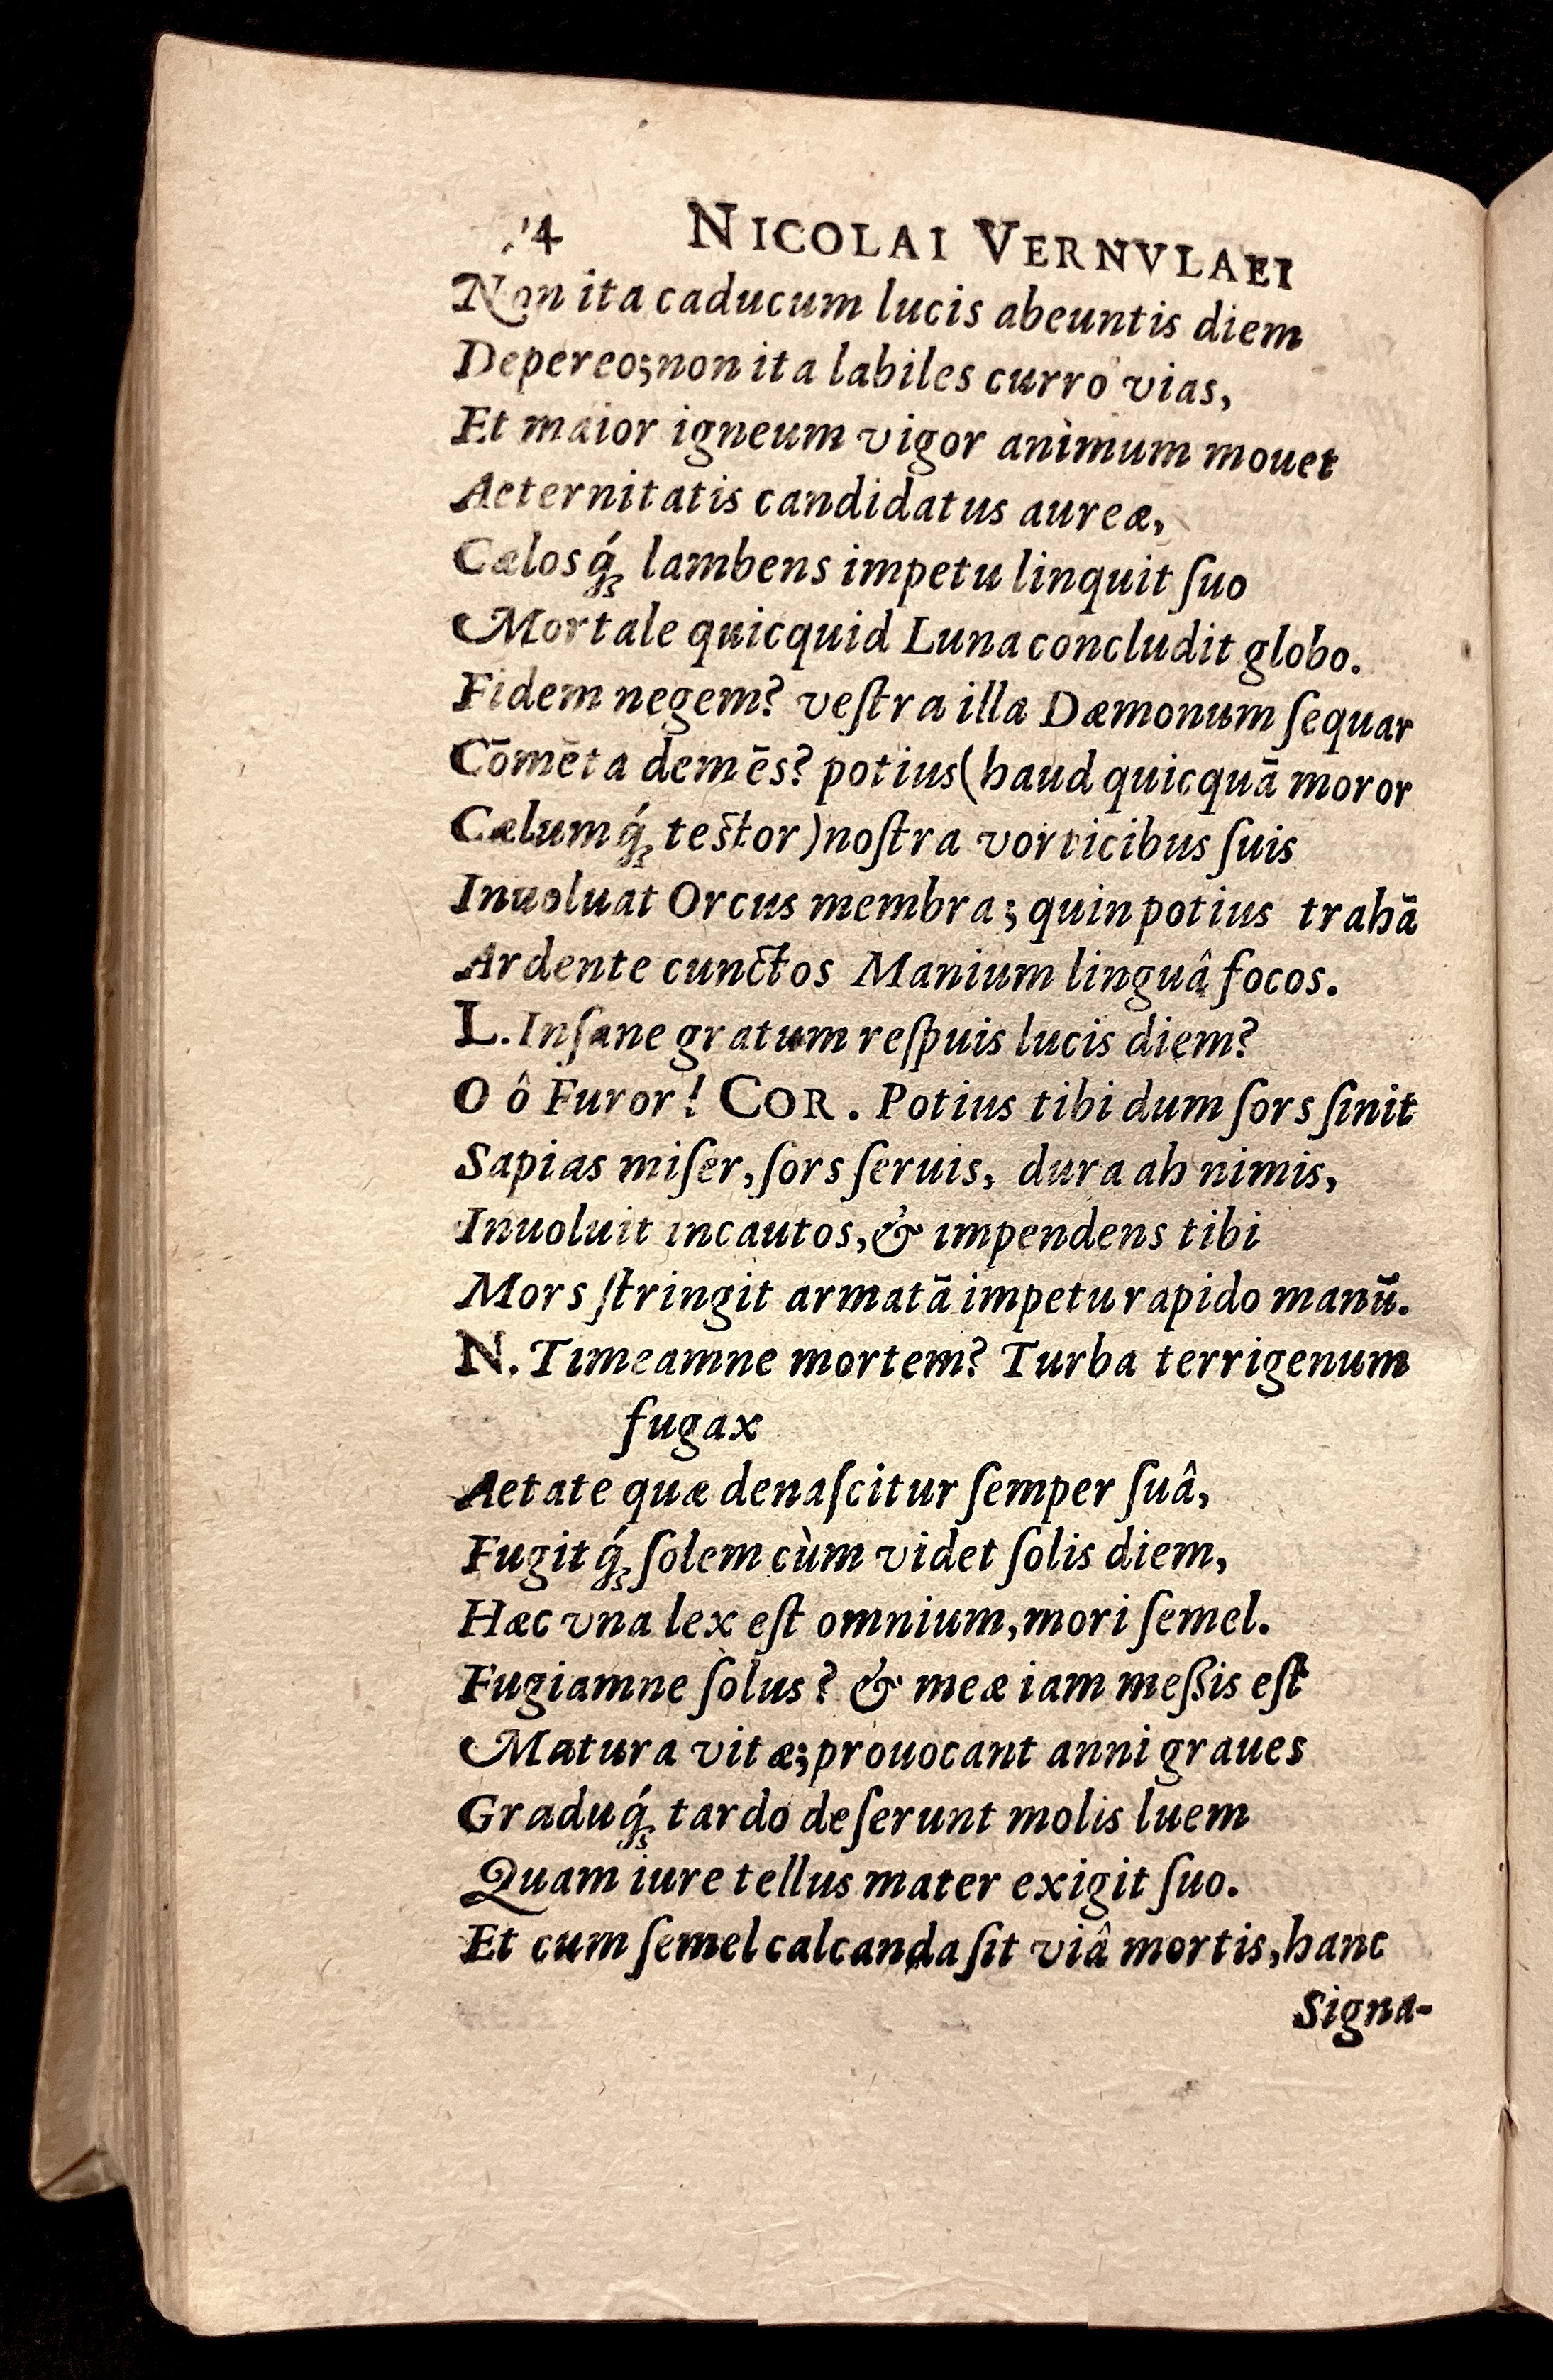 4 NICOLAI VERNVLAEI
Non ita caducum lucis abeuntis diem
Depereo; non ita labiles curro vias,
Et maior igneum vigor animum mouet
Aeternitatis candidatus aureæ,
Cælosq́ꝫ lambens impetu linquit ſuo
Mortale quicquid Luna concludit globo.
Fidem negem? veſtra illa Dæmonum ſequar
Cōmēta demēs? potius (haud quicquā moror
Cælumq́ꝫ testor) noſtra vorticibus ſuis
Inuoluat Orcus membra; quin potius trahā
Ardente cunctos Manium linguâ focos.
L. Inſane gratum reſpuis lucis diem?
O ô Furor! COR. Potius tibi dum ſors ſinit
Sapias miſer, ſors ſeruis, dura ah nimis,
Inuoluit incautos, & impendens tibi
Mors ſtringit armatā impetu rapido manū.
N. Timeamne mortem? Turba terrigenum
fugax
Aetate quæ denaſcitur ſemper ſuâ,
Fugitq́ꝫ ſolem cùm videt ſolis diem,
Hæc vna lex eſt omnium, mori ſemel.
Fugiamne ſolus? & meæ iam meſsis eſt
Matura vitæ; prouocant anni graues
Graduq́ꝫ tardo deſerunt molis luem
Quam iure tellus mater exigit ſuo.
Et cum ſemel calcanda ſit viâ mortis, hanc
Signa-